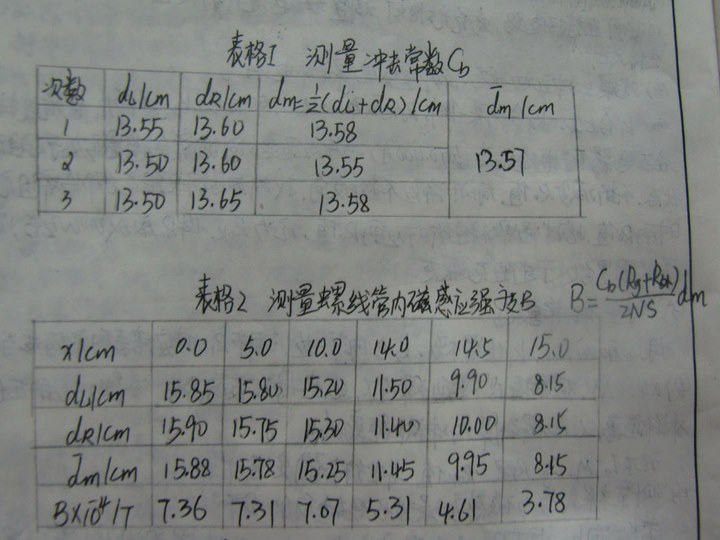 表格1 测量冲击常数Cb
次数 dL/cm dR/cm dm=½(dL+dR)/cm d̄m/cm
1 13.55 13.60 13.58
2 13.50 13.60 13.55 13.57
3 13.50 13.65 13.58
表格2 测量螺线管内磁感应强度B B=Cb(Rg+R)/2NS dm
x/cm 0.0 5.0 10.0 14.0 14.5 15.0
dL/cm 15.85 15.80 15.20 11.50 9.90 8.15
dR/cm 15.90 15.75 15.30 11.40 10.00 8.15
d̄m/cm 15.88 15.78 15.25 11.45 9.95 8.15
B×10⁻⁴/T 7.36 7.31 7.07 5.31 4.61 3.78